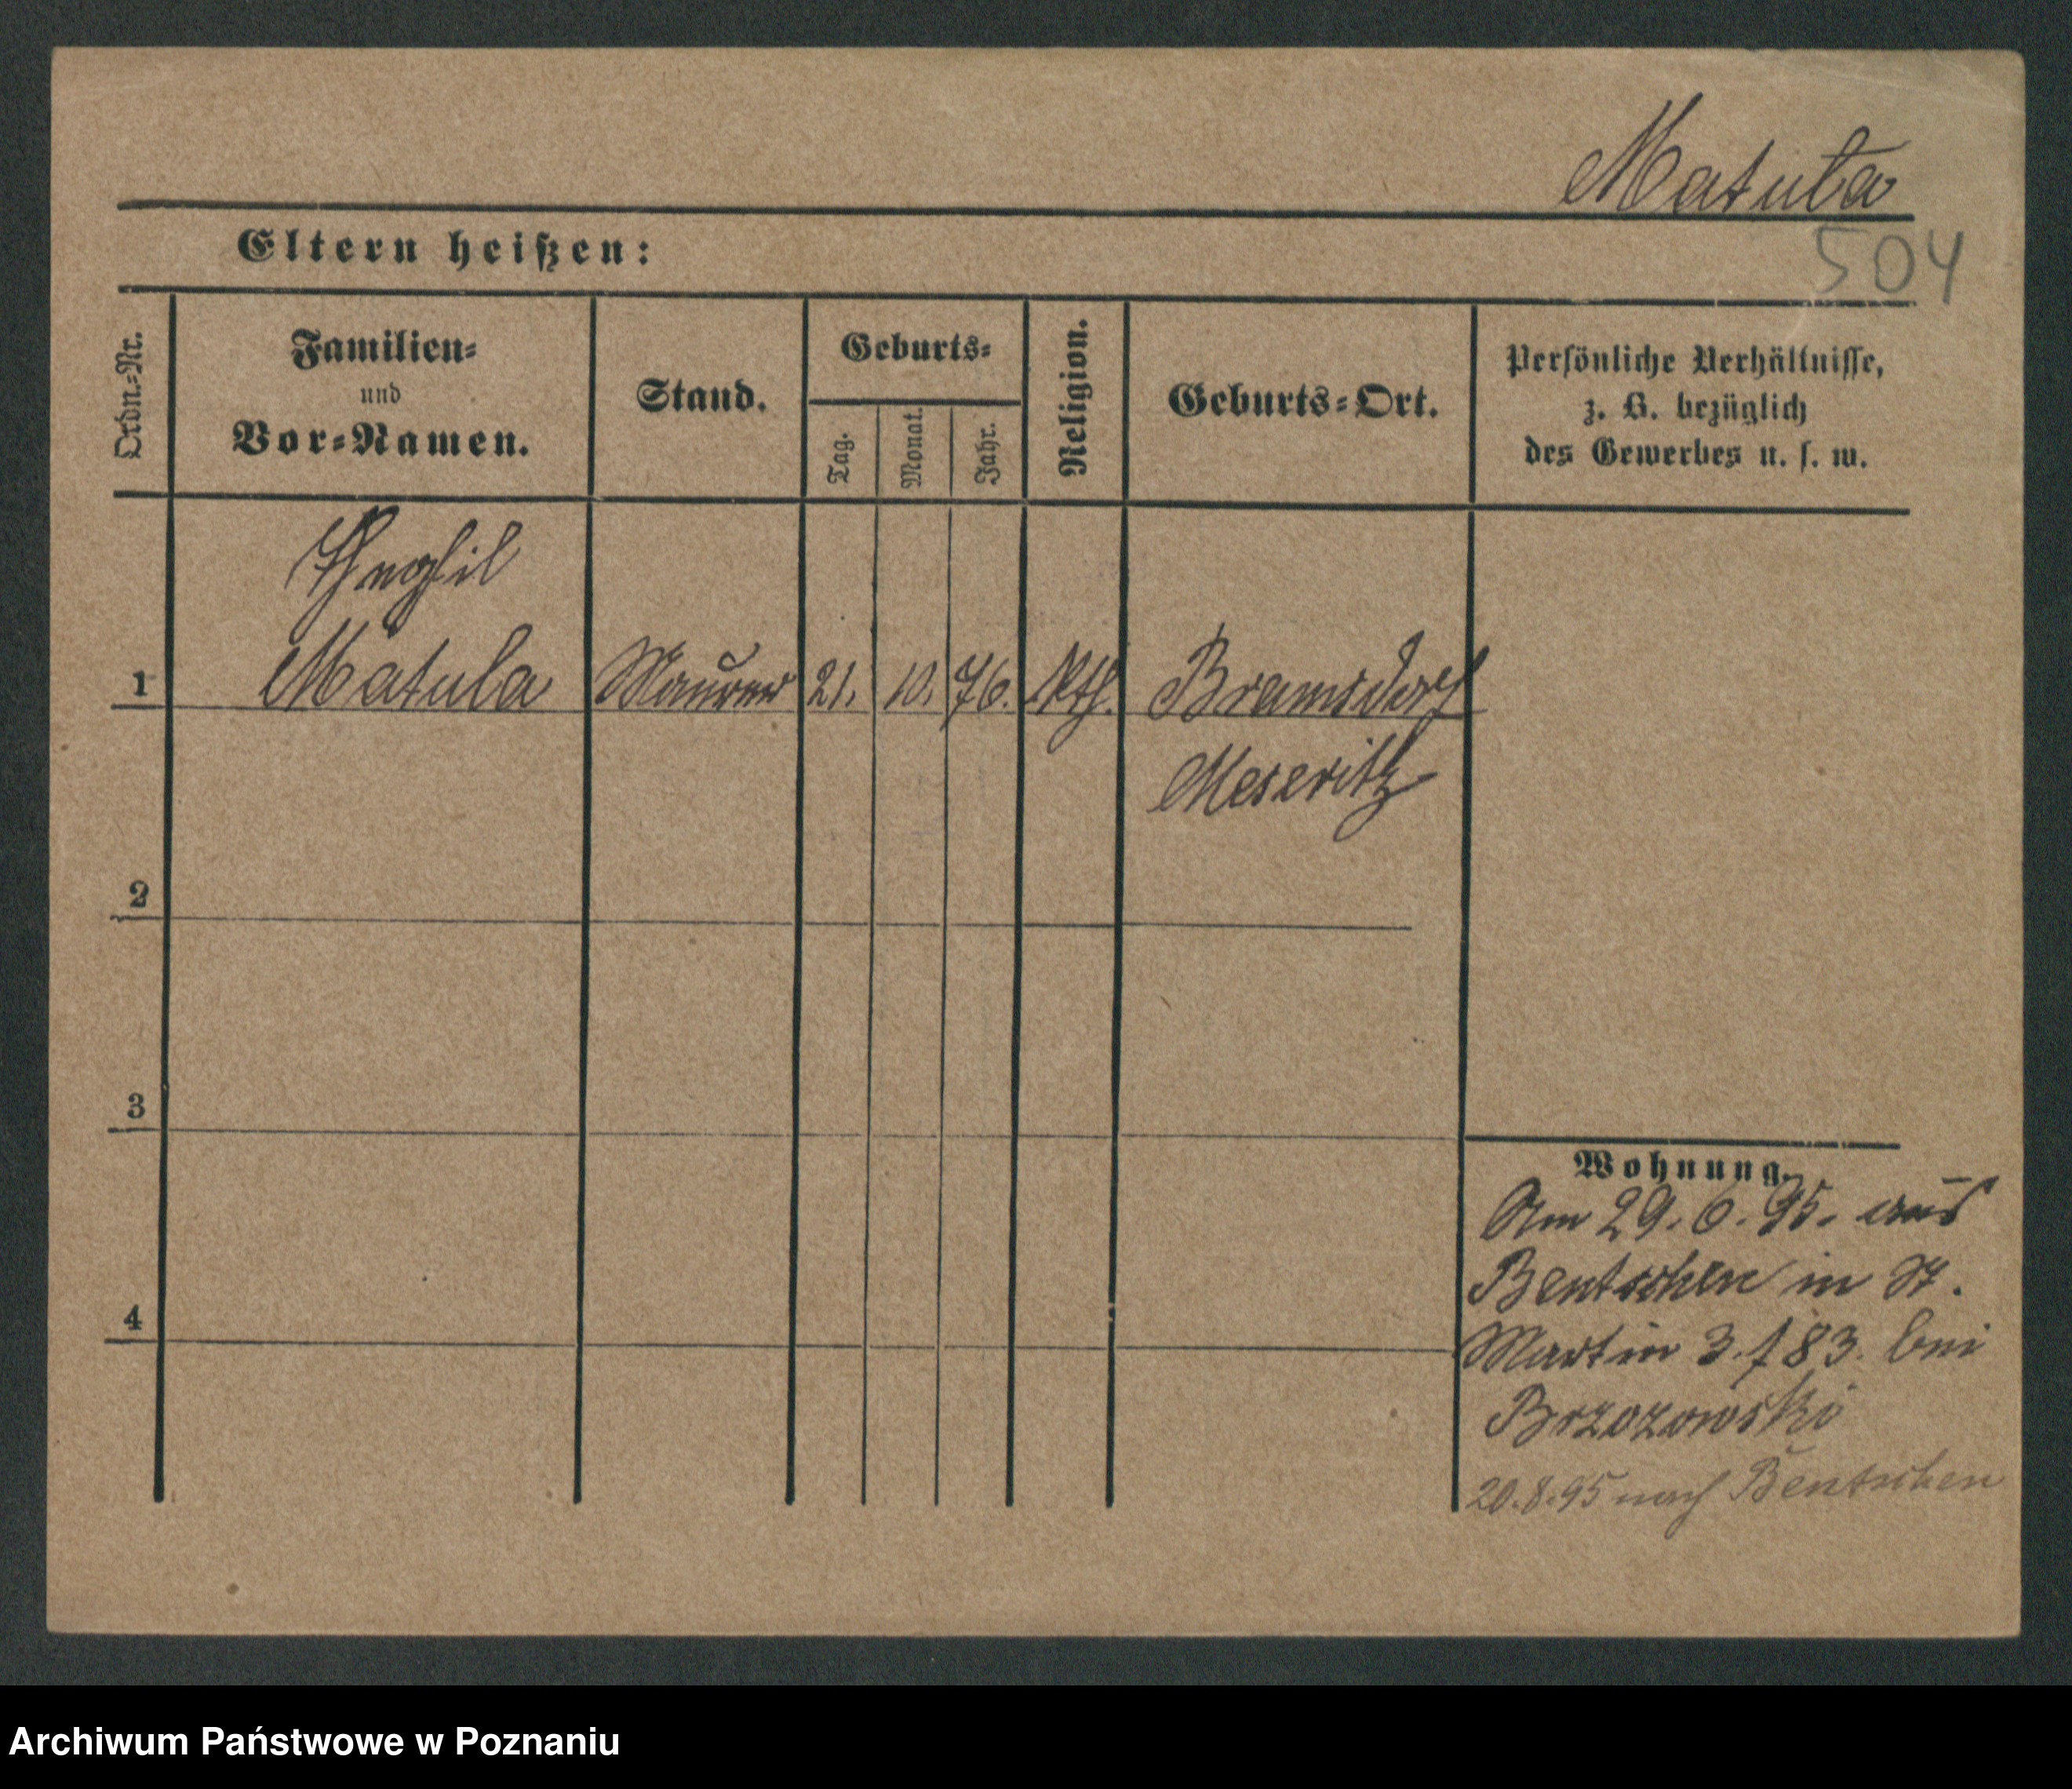 Matula
504
Eltern heißen:
Ordn.-Nr.
Familien-
und
Vor-Namen.
Stand.
Geburts-
Tag.
Monat.
Jahr.
Religion.
Geburts-Ort.
Persönliche Verhältnisse,
z. B. bezüglich
des Gewerbes u. s. w.
1
Matula
Maurer
21.
10.
76.
Kth.
Bramsdorf
Meseritz
2
3
4
Wohnung.
Am 29. 6. 95. aus
Bentschen in St.
Martin 3. f 83. bei
Brzozowski
20.8.95 nach Bentschen
Archiwum Państwowe w Poznaniu